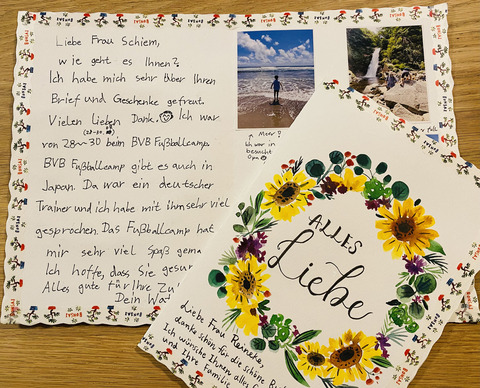 Liebe Frau Schiem,
wie geht es Ihnen?
Ich habe mich sehr über Ihren
Brief und Geschenke gefreut.
Vielen lieben Dank. Ich war
von 28~30 beim BVB Fußballcamp.
BVB Fußballcamp gibt es auch in
Japan. Da war ein deutscher
Trainer und ich habe mit ihm sehr viel
gesprochen. Das Fußballcamp hat
mir sehr viel Spaß
Ich hoffe, dass Sie
Alles gute für Ihre
Dein
↑ Meer?
Ich war in
besucht
Opa
ALLES
Liebe
Liebe Frau
danke Ihnen für die schöne
Ich wünsche Ihnen alles
und Ihre Familie